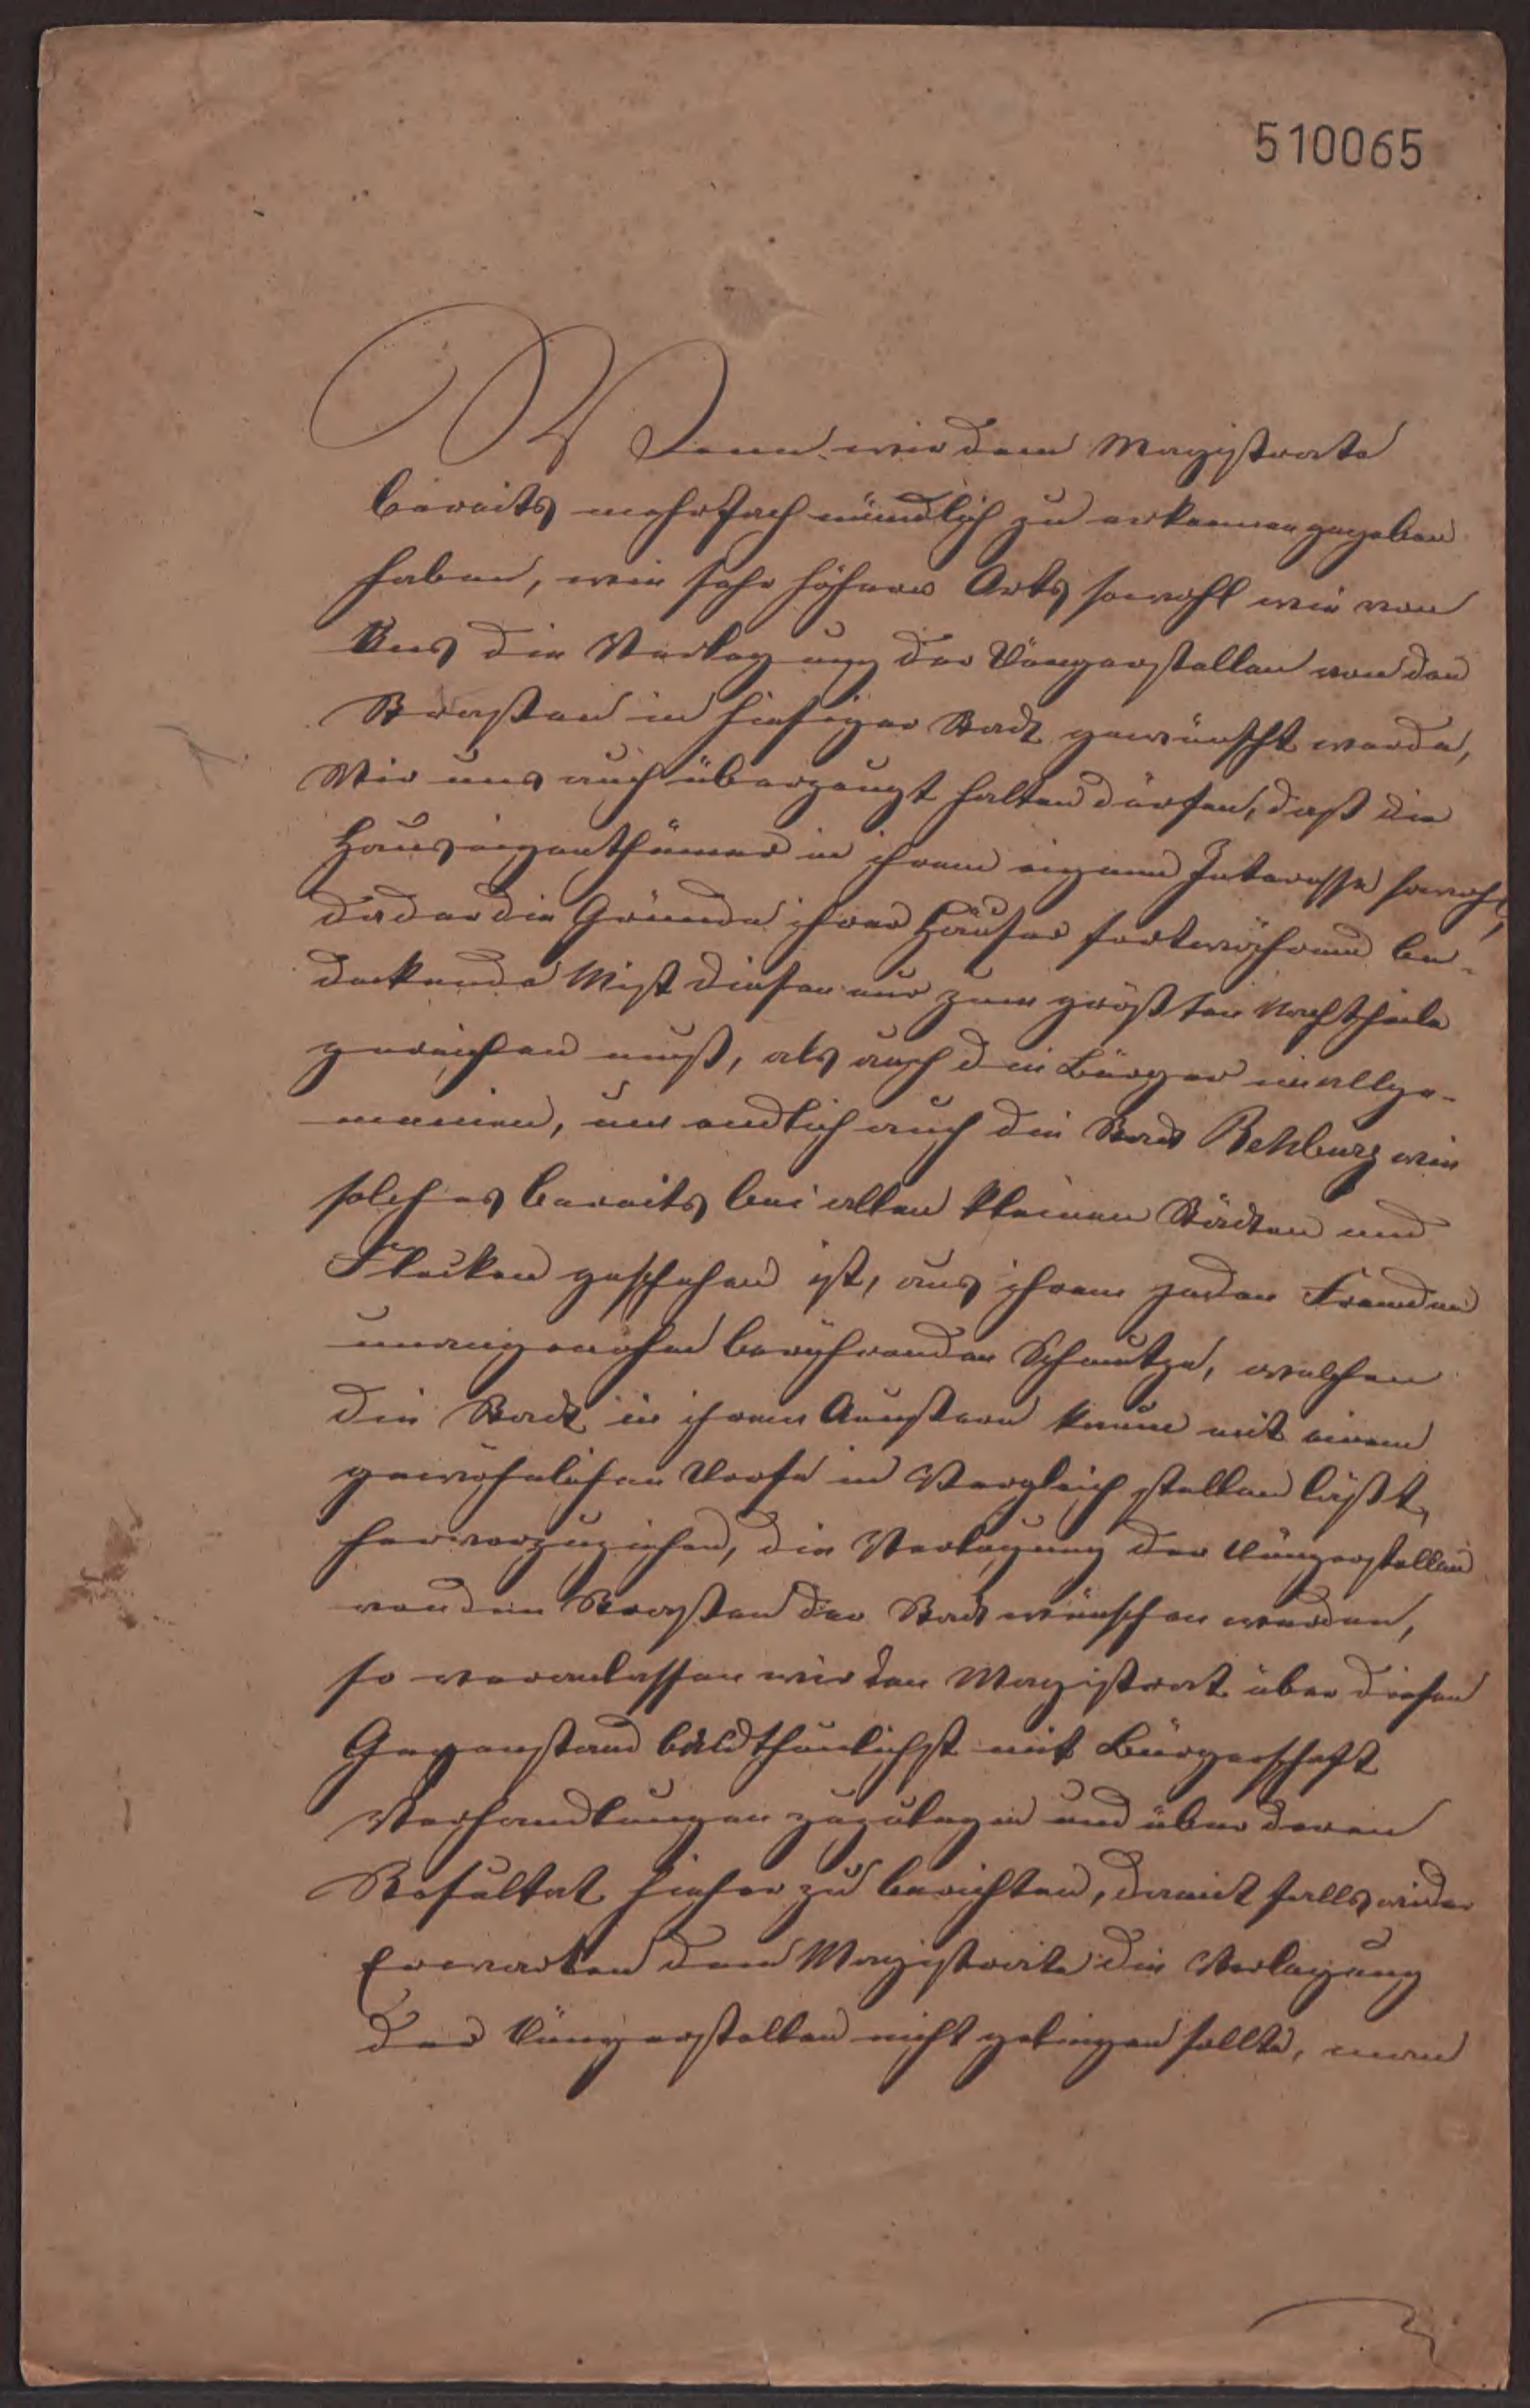 510065
Wenn wir dem Magistrate
bereits mehrfach mündlich zu erkennen gegeben
haben, wie sehr höhern Orts sowohl wie von
Uns die Verlegung der Düngerstellen von den
Straßen in hiesiger Stadt gewünscht werde,
Wir uns auch überzeugt halten dürfen, daß die
Hauseigenthümer in ihrem eigenen Interesse sowohl,
da der die Gründe ihrer Häuser fortwährend be-
deckende Mist diesen nur zum größten Nachtheile
gereichen muß, als auch die Bürger im allge-
meinen, um endlich auch die Stadt Rehburg wie
solches bereits bei allen kleinen Städten und
Flecken geschehen ist, aus ihrem jeden Fremden
unangenehm berührenden Schmutze, welchen
die Stadt in ihrem Aeußern kaum mit einem
gewöhnlichen Dorfe in Vergleich stellen läßt,
hervorzuziehen, die Verlegung der Düngerstellen
von den Straßen der Stadt wünschen werden,
so veranlassen wir den Magistrat über diesen
Gegenstand baldthunlichst mit Bürgerschaft
Verhandlungen zuzulegen und über deren
Resultat hieher zu berichten, damit falls wider
Erwarten dem Magistrate die Verlegung
der Düngerstellen nicht gelingen sollte, man